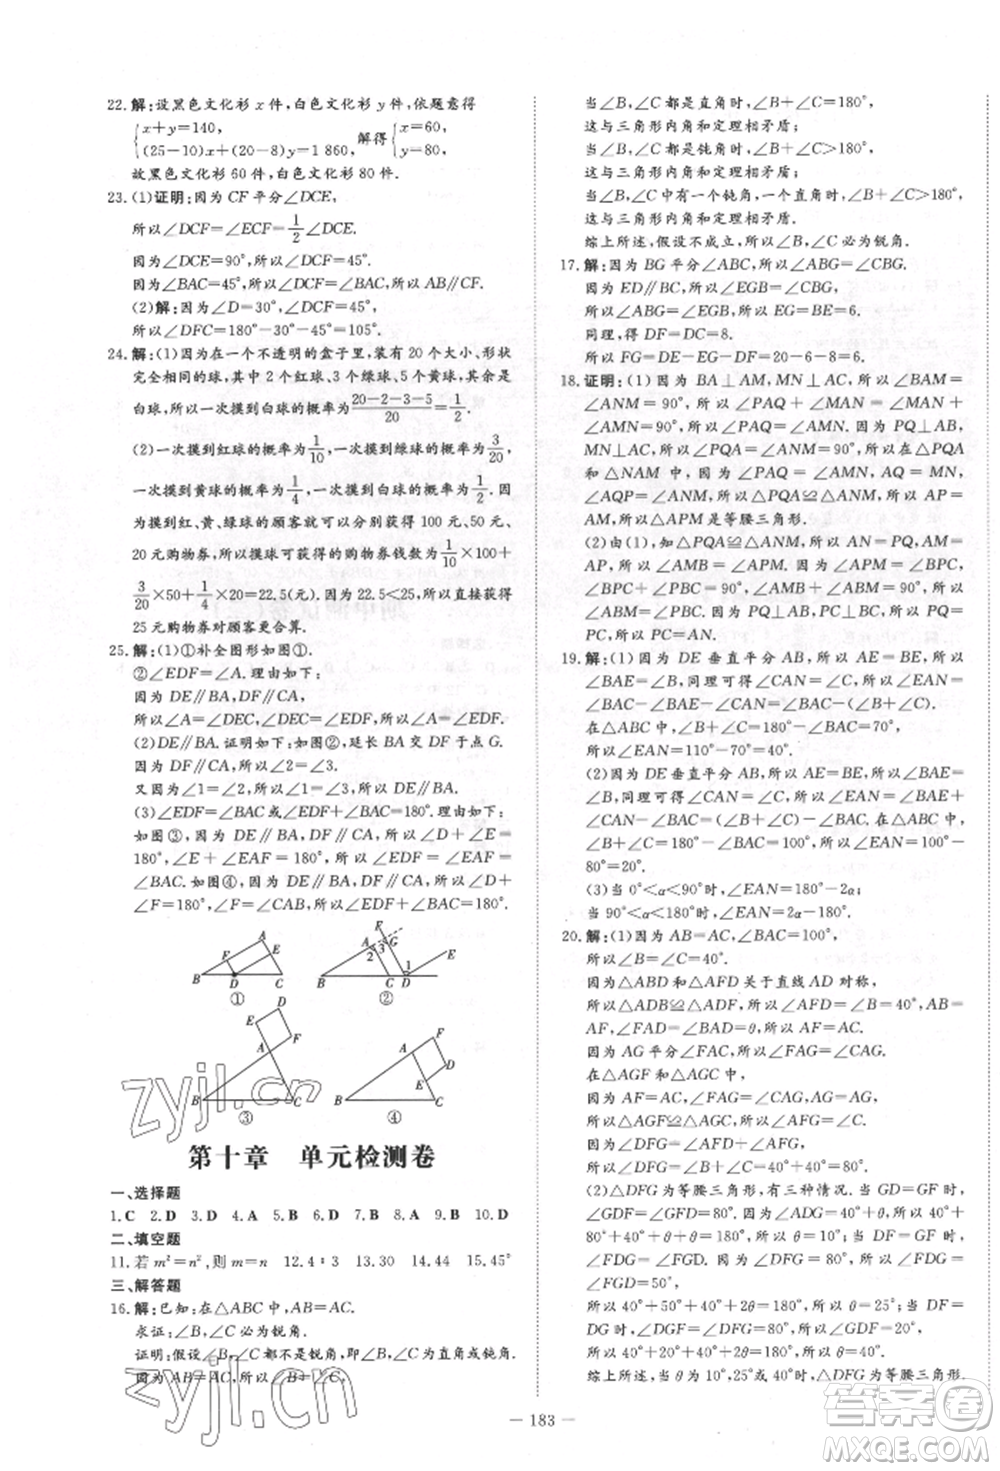 22.解:设黑色文化衫x件,白色文化衫y件,依题意得
{x+y=140, (25-10)x+(20-8)y=1 860, 解得{x=60, y=80.
故黑色文化衫60件,白色文化衫80件.
23.(1)证明:因为CF平分∠DCE,
所以∠DCF=∠ECF=1/2∠DCE.
因为∠DCE=90°,所以∠DCF=45°.
因为∠BAC=45°,所以∠DCF=∠BAC,所以CF∥AB.
(2)解:因为∠D=30°,∠DCF=45°,
所以∠DFC=180°-30°-45°=105°.
24.解:(1)因为在一个不透明的盒子里,装有20个大小、形状
完全相同的球,其中2个红球、3个绿球、5个黄球,其余是
白球,所以一次摸到白球的概率为(20-2-3-5)/20=1/2.
(2)一次摸到红球的概率为1/10,一次摸到绿球的概率为3/20,
一次摸到黄球的概率为1/4,一次摸到白球的概率为1/2.因为
摸到红、黄、绿球的顾客就可以分别获得100元、50元、
20元购物券,所以摸球可获得的购物券钱数为1/10×100+
3/20×50+1/4×20=22.5(元).因为22.5<25,所以直接获得
25元购物券对顾客更合算.
25.解:(1)①补全图形如图①.
②∠EDF=∠A.理由如下:
因为DE∥BA,DF∥CA,
所以∠A=∠DEC,∠DEC=∠EDF,所以∠A=∠EDF.
(2)DE∥BA.证明如下:如图②,延长BA交DF于点G.
因为DF∥CA,所以∠2=∠3.
又因为∠1=∠2,所以∠1=∠3,所以DE∥BA.
(3)∠EDF=∠BAC或∠EDF+∠BAC=180°.理由如下:
如图③,因为DE∥BA,DF∥CA,所以∠D+∠E=
180°,∠E+∠EAF=180°,所以∠EDF=∠EAF=
∠BAC.如图④,因为DE∥BA,DF∥CA,所以∠D+
∠F=180°,∠F=∠CAB,所以∠EDF+∠BAC=180°.
A E F B D C ①
A F G E 2 3 1 B C D ②
D E F A B C ③
F A D E B C ④
第十章 单元检测卷
一、选择题
1.C 2.D 3.D 4.A 5.B 6.D 7.B 8.A 9.B 10.D
二、填空题
11.若m²=n²,则m=n 12.4∶3 13.30 14.44 15.45°
三、解答题
16.解:已知:在△ABC中,AB=AC.
求证:∠B,∠C必为锐角.
证明:假设∠B,∠C不是锐角,即∠B,∠C为直角或钝角.
因为AB=AC,所以∠B=∠C.
当∠B,∠C都是直角时,∠B+∠C=180°,
这与三角形内角和定理相矛盾;
当∠B,∠C都是钝角时,∠B+∠C>180°,
这与三角形内角和定理相矛盾;
当∠B,∠C中有一个钝角时,∠B+∠C>180°,
这与三角形内角和定理相矛盾.
综上所述,假设不成立,所以∠B,∠C必为锐角.
17.解:因为BG平分∠ABC,所以∠EBG=∠CBG,
因为ED∥BC,所以∠EGB=∠CBG,
所以∠EBG=∠EGB,所以EG=BE=6.
同理,得DF=DC=8.
所以FG=DE-EG-DF=20-6-8=6.
18.证明:(1)因为BA⊥AM,MN⊥AC,所以∠BAM=
∠ANM=90°,所以∠PAQ+∠MAN=∠MAN+
∠AMN=90°,所以∠PAQ=∠AMN.因为PQ⊥AB,
MN⊥AC,所以∠PQA=∠ANM=90°.在△PQA
和△NAM中,因为∠PAQ=∠AMN,AQ=MN,
∠AQP=∠MNA=90°,所以△PQA≌△ANM,所以AP
=AM,所以△APM是等腰三角形.
(2)由(1),知△PQA≌△ANM,所以AN=PQ,AM=
AP,所以∠AMB=∠APM.因为∠APM=∠BPC,
∠BPC+∠PBC=90°,∠AMB+∠ABM=90°,所以
∠ABM=∠PBC.因为PQ⊥AB,PC⊥BC,所以
PQ=PC,所以PC=AN.
19.解:(1)因为DE垂直平分AB,所以AE=BE,所以
∠BAE=∠B,同理可得∠CAN=∠C,所以∠EAN=
∠BAC-∠BAE-∠CAN=∠BAC-(∠B+∠C).
在△ABC中,∠B+∠C=180°-∠BAC=70°,
所以∠EAN=110°-70°=40°.
(2)因为DE垂直平分AB,所以AE=BE,所以∠BAE=
∠B,同理可得∠CAN=∠C,所以∠EAN=∠BAE+
∠CAN-∠BAC=(∠B+∠C)-∠BAC.在△ABC中,
∠B+∠C=180°-∠BAC=100°,所以∠EAN=100°-
80°=20°.
(3)当0°<α<90°时,∠EAN=180°-2α;
当90°<α<180°时,∠EAN=2α-180°.
20.解:(1)因为AB=AC,∠BAC=100°,
所以∠B=∠C=40°.
因为△ABD和△AFD关于直线AD对称,
所以△ADB≌△ADF,所以∠AFD=∠B=40°,AB=
AF,∠FAD=∠BAD=θ,所以AF=AC.
因为AG平分∠FAC,所以∠FAG=∠CAG.
在△AGF和△AGC中,
因为AF=AC,∠FAG=∠CAG,AG=AG,
所以△AGF≌△AGC,所以∠AFG=∠C.
因为∠DFG=∠AFD+∠AFG,
所以∠DFG=∠B+∠C=40°+40°=80°.
(2)△DFG为等腰三角形,有三种情况.当GD=GF时,
所以∠FDG=∠DFG=80°.因为∠ADG=40°+θ,所以40°+
80°+40°+θ+θ=180°,所以θ=10°;当DF=GF时,
∠FDG=∠FGD.因为∠DFG=80°,所以∠FDG=
∠FGD=50°,
所以40°+50°+40°+2θ=180°,所以θ=25°;当DF=
DG时,所以∠DFG=∠DGF=80°,所以∠GDF=20°,
所以40°+20°+40°+2θ=180°,所以θ=40°.
综上所述,当θ=10°,25°或40°时,△DFG为等腰三角形.
— 183 —
zyjl.cn
zyjl.cn
答案圈
MXQE.COM